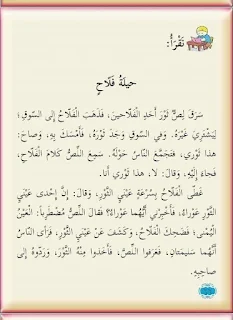 نَقْرَأُ:
حيلَةُ فَلّاحٍ
سَرَقَ لِصٌّ ثَوْرَ أَحَدِ الْفَلّاحينَ، فَذَهَبَ الْفَلّاحُ إِلى السّوقِ؛
لِيَشْتَرِيَ غَيْرَهُ. وَفي السّوقِ وَجَدَ ثَوْرَهُ، فَأَمْسَكَ بِهِ، وَصاحَ:
هذا ثَوْري، فَتَجَمَّعَ النّاسُ حَوْلَهُ. سَمِعَ اللِّصُّ كَلامَ الْفَلّاحِ،
فَجاءَ إِلَيْهِ، وَقالَ: لا، هذا ثَوْري أَنا.
غَطّى الْفَلّاحُ بِسُرْعَةٍ عَيْنَيِ الثَّوْرِ، وَقالَ: إِنَّ إِحْدى عَيْنَيِ
الثَّوْرِ عَوْراءُ، فَأَخْبِرْني أَيُّهُما عَوْراءُ؟ فَقالَ اللِّصُّ مُضْطَرِباً: الْعَيْنُ
الْيُمْنى؛ فَضَحِكَ الْفَلّاحُ، وَكَشَفَ عَنْ عَيْنَيِ الثَّوْرِ، فَرَأى النّاسُ
أَنَّهُما سَليمَتانِ، فَعَرَفوا اللِّصَّ، فَأَخَذوا مِنْهُ الثَّوْرَ، وَرَدّوهُ إِلى
صاحِبِهِ.